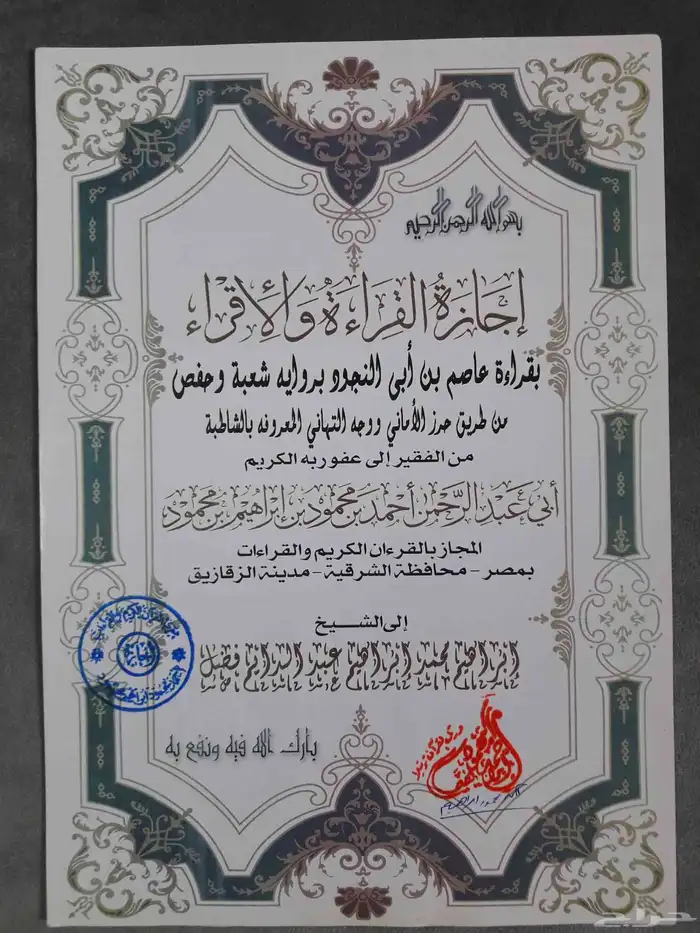 بسم الله الرحمن الرحيم
إجازة القراءة والإقراء
بقراءة عاصم بن أبي النجود بروايه شعبة وحفص
من طريق حرز الأماني ووجه التهاني المعروفه بالشاطبة
من الفقير إلى عفو ربه الكريم
أبي عبد الرحمن أحمد بن محمود بن إبراهيم بن محمود
المجاز بالقرءان الكريم والقراءات
بمصر - محافظة الشرقية - مدينة الزقازيق
إلى الشيخ
إبراهيم محمد إبراهيم عبد الدايم فضل
بارك الله فيه ونفع به
حراج